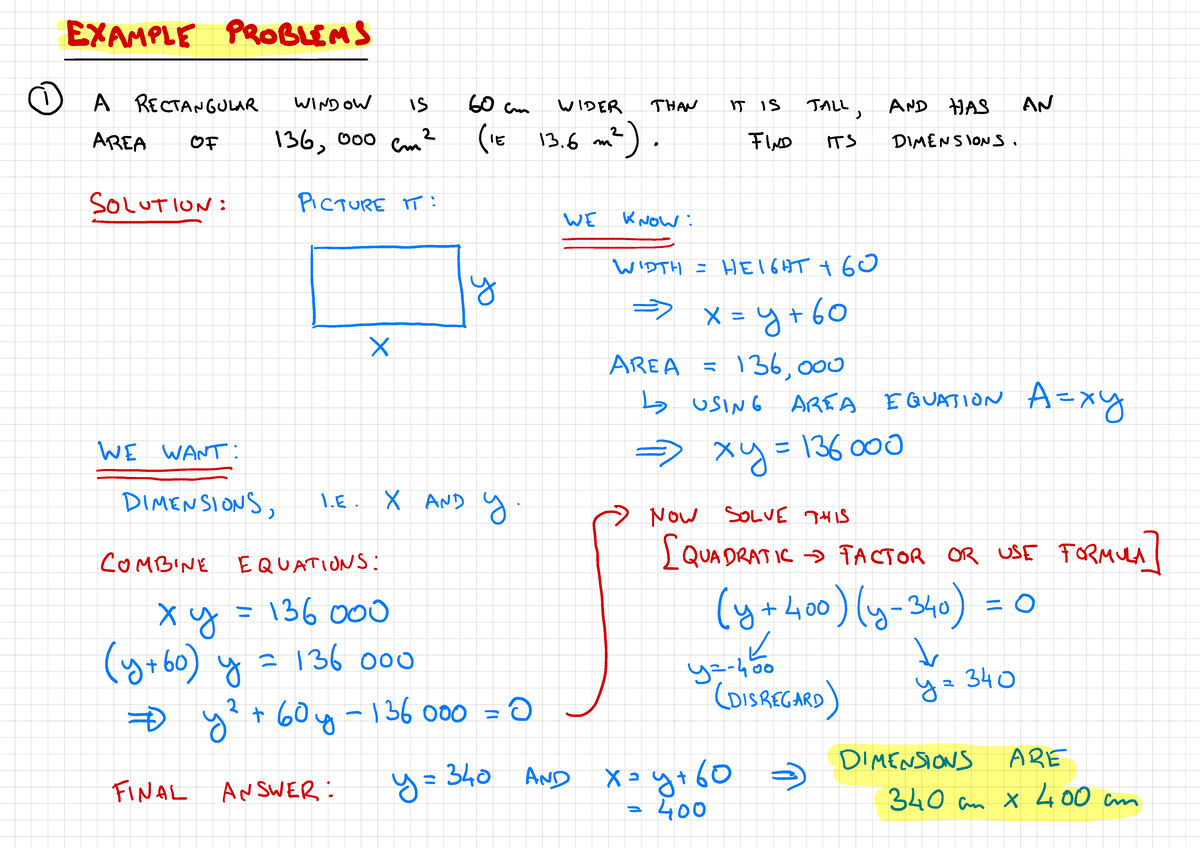 EXAMPLE PROBLEMS
① A RECTANGULAR WINDOW IS 60 cm WIDER THAN IT IS TALL, AND HAS AN
AREA OF 136,000 cm² (IE 13.6 m²). FIND ITS DIMENSIONS.
SOLUTION:
PICTURE IT:
y
x
WE KNOW:
WIDTH = HEIGHT + 60
⇒ x = y + 60
AREA = 136,000
↳ USING AREA EQUATION A = xy
⇒ xy = 136 000
WE WANT:
DIMENSIONS, I.E. X AND y.
COMBINE EQUATIONS:
xy = 136 000
(y+60) y = 136 000
⇒ y² + 60y - 136 000 = 0
→ NOW SOLVE THIS
[QUADRATIC → FACTOR OR USE FORMULA]
(y + 400)(y - 340) = 0
y=-400
(DISREGARD)
y = 340
FINAL ANSWER: y = 340 AND x = y + 60 ⇒
= 400
DIMENSIONS ARE
340 cm x 400 cm